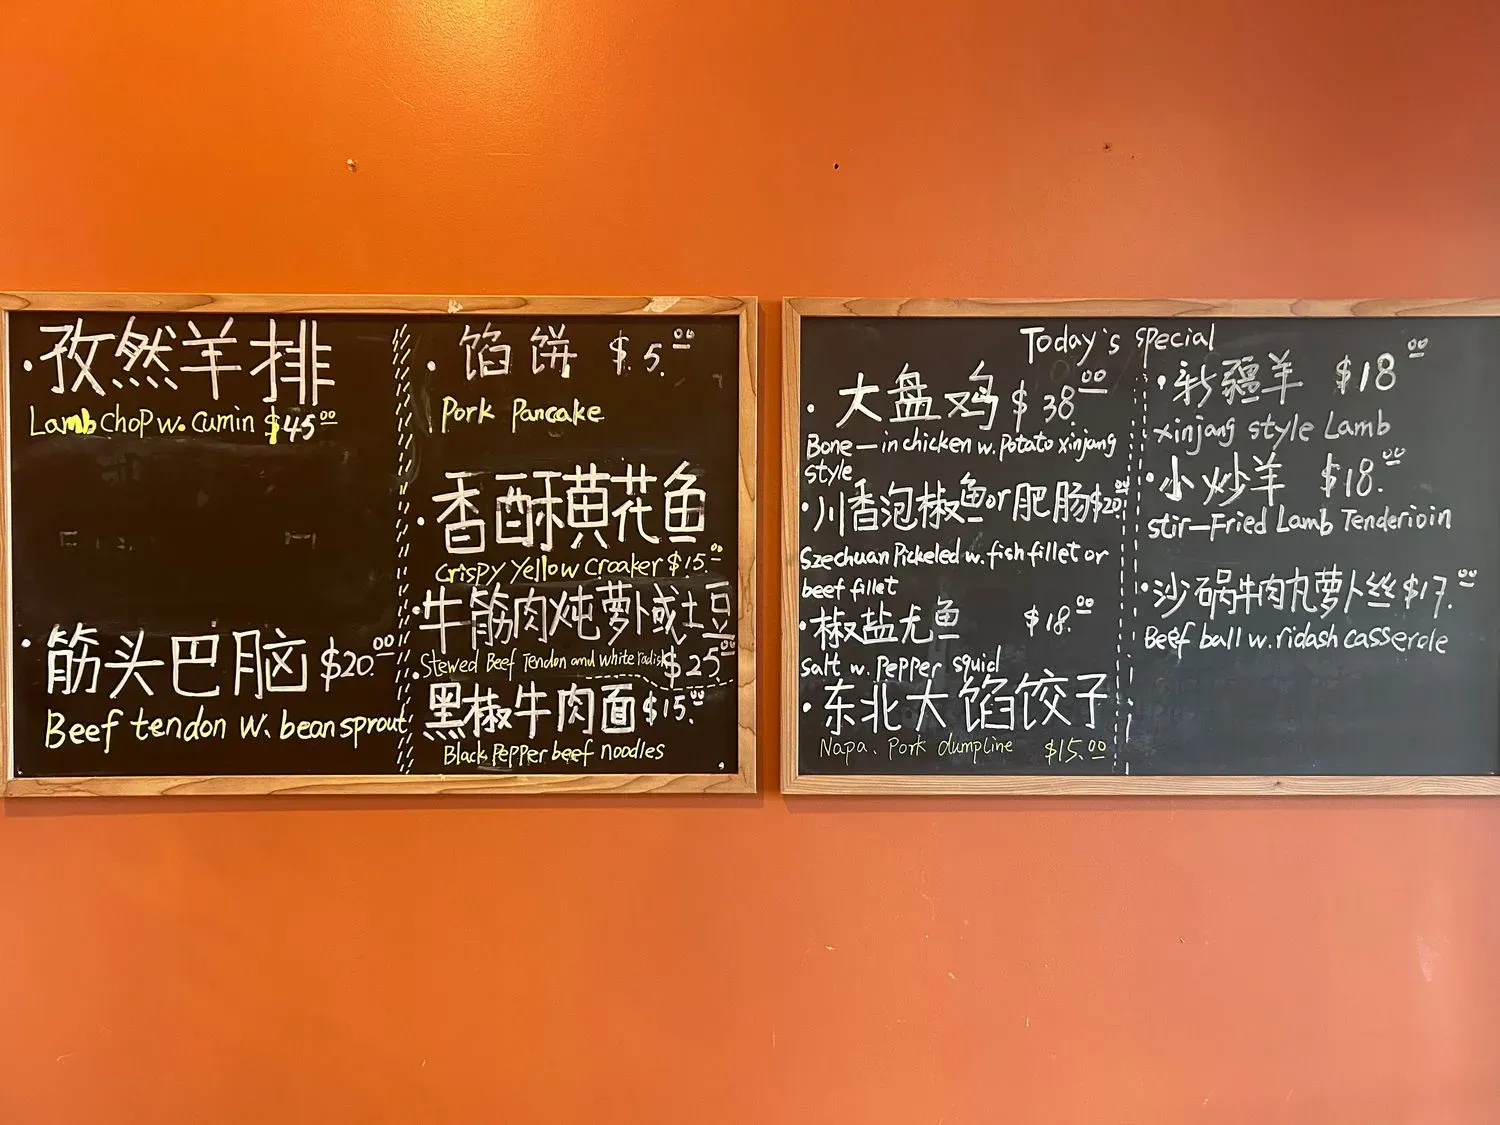 ·孜然羊排
Lamb Chop w. Cumin $45.00
·筋头巴脑 $20.00
Beef tendon w. bean sprout
· 馅饼 $5.00
Pork Pancake
·香酥黄花鱼
Crispy Yellow Croaker $15.00
·牛筋肉炖萝卜或土豆
Stewed Beef Tendon and white radish $25.00
·黑椒牛肉面 $15.00
Black Pepper beef noodles
Today's special
·大盘鸡 $38.00
Bone—in chicken w. potato xinjang
style
·川香泡椒鱼or肥肠 $20.00
Szechuan Pickeled w. fish fillet or
beef fillet
·椒盐尤鱼 $18.00
Salt w. Pepper squid
·东北大馅饺子
Napa. Pork dumpline $15.00
·新疆羊 $18.00
xinjang style Lamb
·小炒羊 $18.00
stir—Fried Lamb Tenderioin
·沙锅牛肉丸萝卜丝 $17.00
Beef ball w. ridash casserole